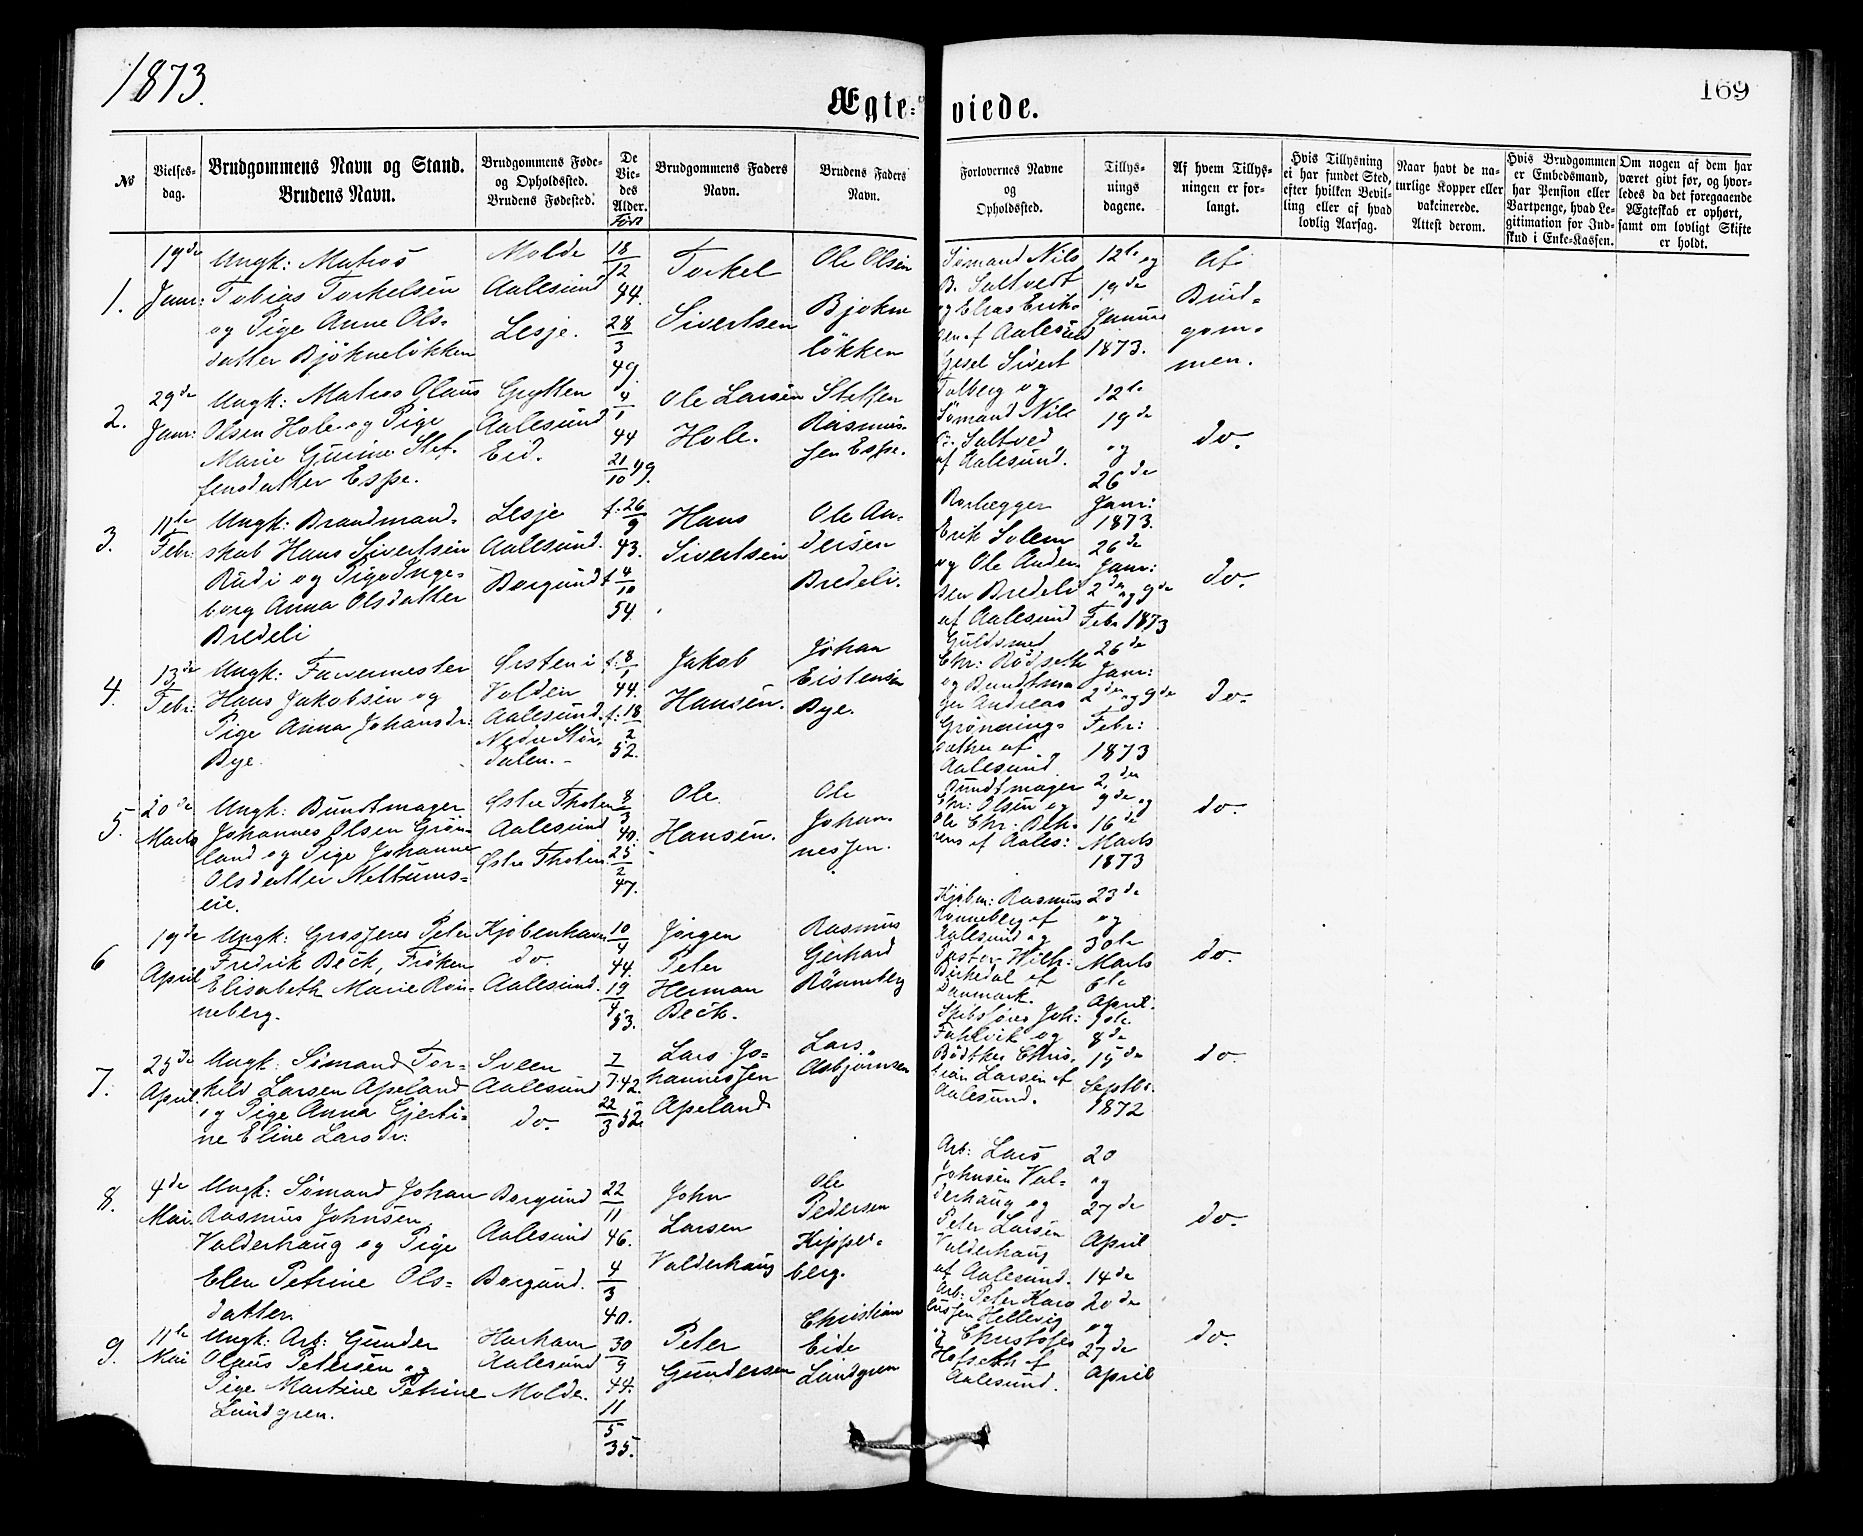 1873.
169
Ægteviede.
No
Vielsesdag.
Brudgommens Navn og Stand.
Brudens Navn.
Brudgommens Føde-
og Opholdssted.
Brudens Fødested.
De
Vie-
des
Alder.
Født
Brudgommens Faders
Navn.
Brudens Faders
Navn.
Forlovernes Navne
og
Opholdssted.
Tillys-
nings
dagene.
Af hvem Tillys-
ningen er for-
langt.
Hvis Tillysning
ei har fundet Sted,
efter hvilken Bevil-
ling eller af hvad
lovlig Aarsag.
Naar havt de na-
turlige Kopper eller
vakcinerede.
Attest derom.
Hvis Brudgommen
er Embedsmand,
har Pension eller
Vartpenge, hvad Le-
gitimation for Ind-
skud i Enke-Kassen.
Om nogen af dem har
været givt før, og hvor-
ledes da det foregaaende
Ægteskab er ophørt,
samt om lovligt Skifte
er holdt.
1.
19de
Janr:
Ungk: Matros
Tobias Torkelsen
og Pige Anne Ols-
datter Bjökneløkken
Molde
Aalesund
Lesje.
18/12
44.
28/3
49.
Torkel
Sivertsen
Ole Olsen
Bjokne
løkken
Sømand Nils
B. Saltvedt
og Elias Erik-
sen af Aalesund
12te og
19de
Januar
1873.
Af
Brud-
gom-
men.
2.
29de
Janr:
Ungk: Matros Olaus
Olsen Hole og Pige
Marie Gurine Stef-
fensdatter Espe.
Grytten
Aalesund
Eid.
4/1
44
21/10 49.
Ole Larsen
Hole.
Steffen
Rasmus-
sen Espe.
Gesel Sivert
Talberg og
Sømand Nils
B. Saltved
af Aalesund.
12te
19de
og
26de
Janr:
1873.
do.
3.
11te
Febr:
Ungk: Brandmand-
skab Hans Sivertsen
Rudi og Pige Inge-
borg Anna Olsdatter
Bredeli
Lesje
Aalesund.
Borgund
f. 26/9
43.
f. 4/10
54.
Hans
Sivertsen
Ole An-
dersen
Bredeli.
Rorlægger
Erik Solem
og Ole Ander-
sen Bredeli
af Aalesund
26de
Janr:
2den og 9de
Febr 1873
do.
4.
13de
Febr:
Ungk: Farvermester
Hans Jakobsen og
Pige Anna Johansdr:
Bye.
Ørsten i
Volden
Aalesund.
Nedre Stør-
dalen.
f. 8/1
44.
f. 18/2
52.
Jakob
Hansen.
Johan
Eistensen
Bye.
Guldsmed
Chr: Rødseth
og Bundtma
ger Andreas
Grønnings-
sæther af
Aalesund.
26de
Janr:
2den og 9de
Febr:
1873
do.
5.
20de
Marts
Ungk: Bundtmager
Johannes Olsen Grøn-
land og Pige Johanne
Olsdatter Nettums-
eie.
Østre Thoten
Aalesund
Østre Thoten.
8/3
40.
25/2
47.
Ole
Hansen.
Ole
Johan-
nessen.
Bundtmager
Chr: Olsen og
Ole Chr. Beh-
rens af Aales:
2den
9de og
16de
Marts
1873
do.
6
19de
April
Ungk: Grosserer Peter
Fredrik Beck, Frøken
Elisabeth Marie Røn-
neberg.
Kjøbenhavn
do.
Aalesund.
10/4
44.
19/4
53.
Jørgen
Peter
Herman
Beck.
Rasmus
Gerhard
Rønneberg
Kjøbm: Rasmus
Rønneberg af
Aalesund og
Pastor Wilh:
Birkedal af
Danmark.
23de
og
30te
Marts
6te
April.
do.
7.
25de
April.
Ungk: Sømand Tor-
kild Larsen Apeland
og Pige Anna Gjerti-
ne Eline Larsdr:
Sveen
Aalesund
do.
7/7 42.
22/3 52
Lars Jo-
hannessen
Apeland
Lars
Asbjørnsen
Skibsfører Joh:
Falkvik og
Bødtker Chris-
tian Larsen af
Aalesund.
8de
15de
Septbr.
1872
do.
8.
4de
Mai.
Ungk: Sømand Johan
Rasmus Johnsen
Valderhaug og Pige
Elen Petrine Ols-
datter.
Borgund
Aalesund
Borgund.
22/11
46.
4/3
40.
John
Larsen
Valderhaug
Ole
Pedersen
Kipper-
berg.
Arb: Lars
Johnsen Val-
derhaug og
Peter Larsen
Valderhaug
af Aalesund.
20
og
27de
April
do.
9.
11te
Mai
Ungk: Arb: Gunder
Olaus Petersen og
Pige Martine Petrine
Lundgren.
Harham
Aalesund
Molde.
30/9
44.
11/5
35.
Peter
Gundersen
Christian
Eide
Lundgren
Arb: Peter Karo
lussen Hellevig
og Christofer
Hofseth af
Aalesund.
14de
20de
og
27de
April
do.